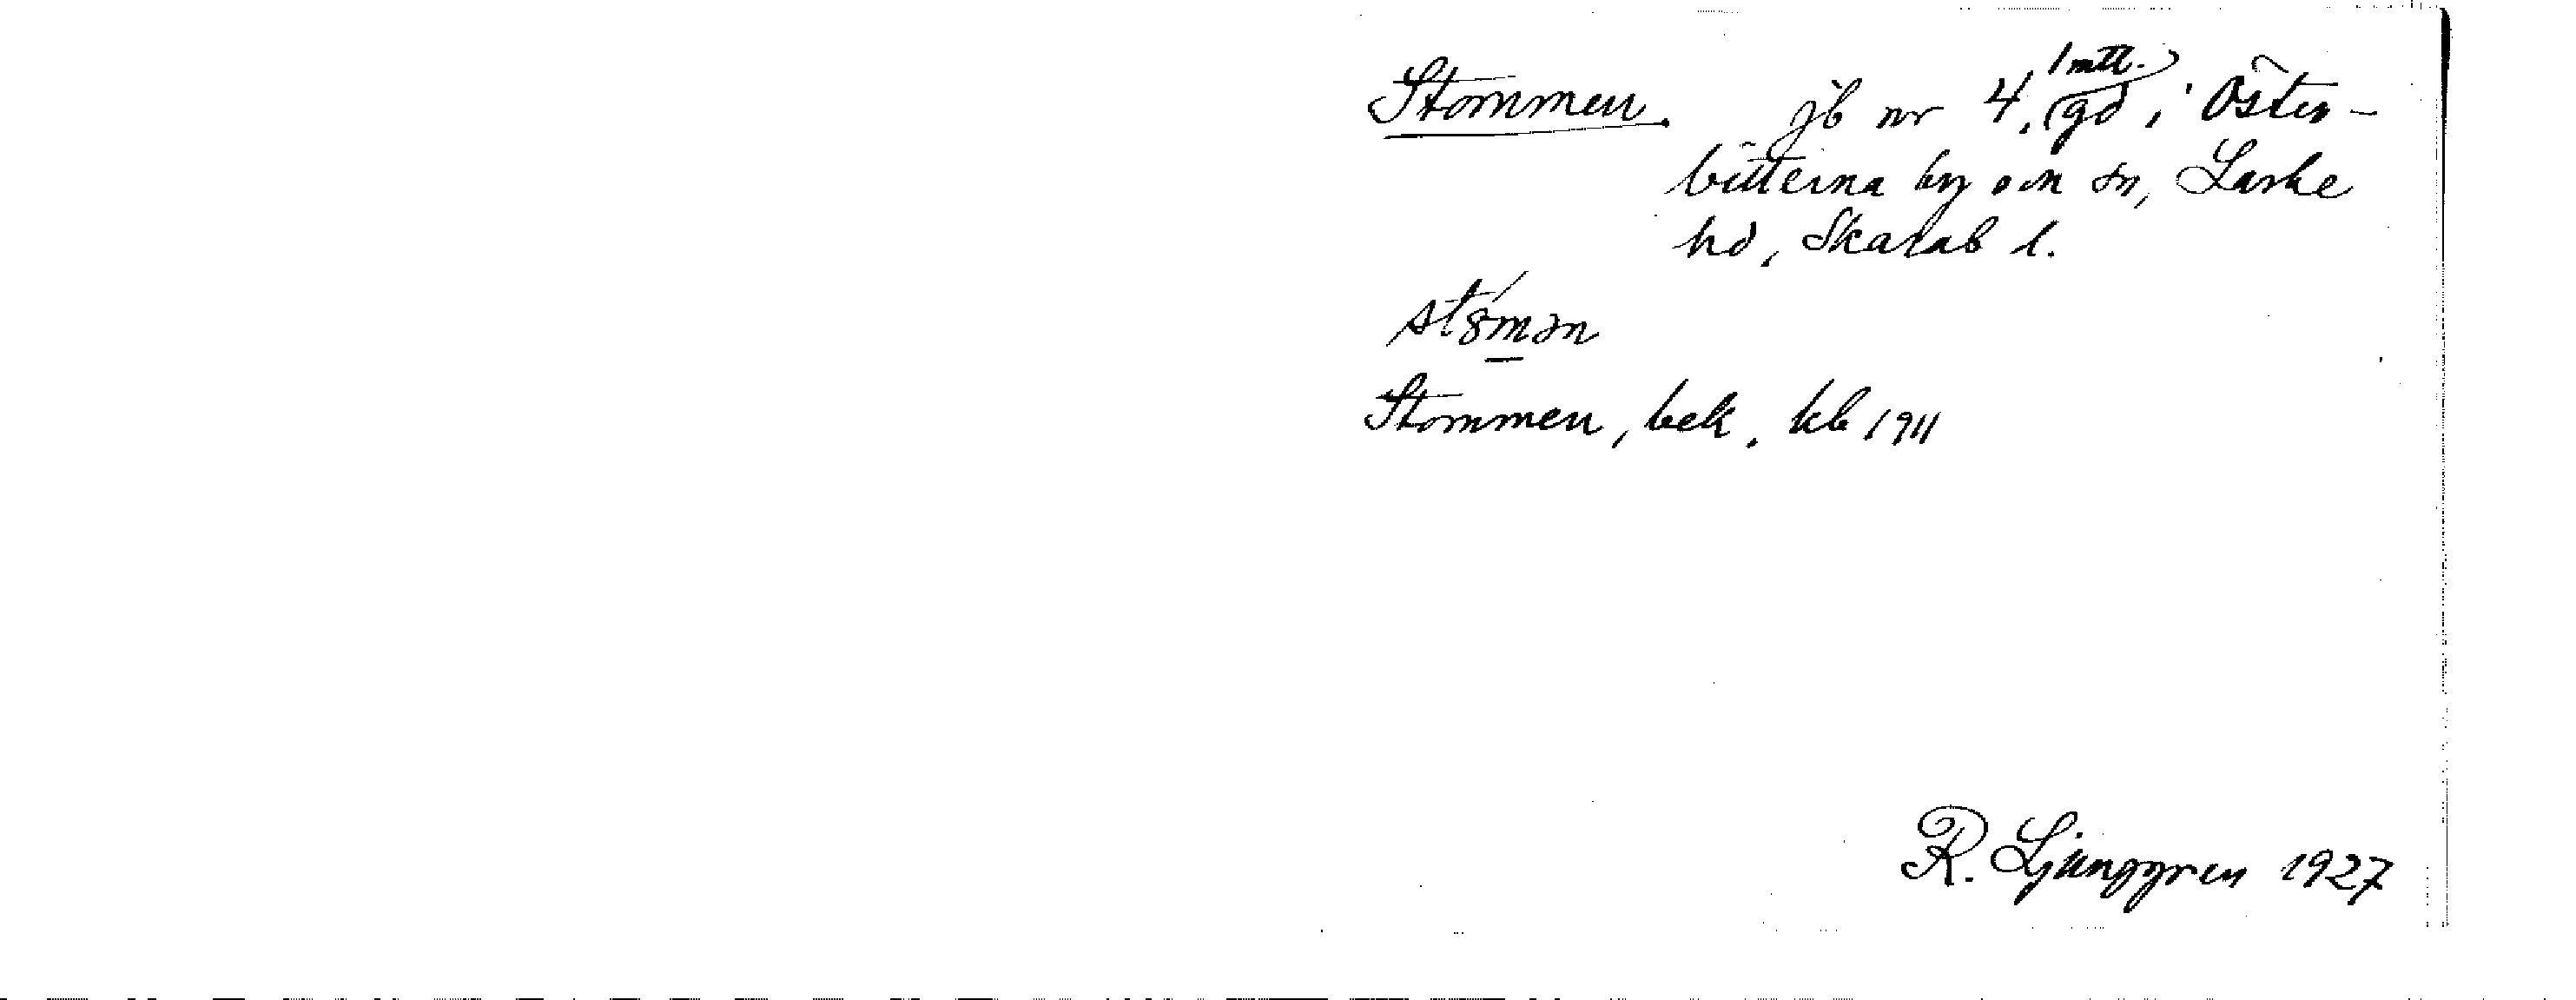 Stommen. jb nr 4, 1 mtl. gd i Öster-
bitterna by o sn, Laske
hd, Skarab l.
stómən
Stommen, bek. kb 1911
R. Ljunggren 1927